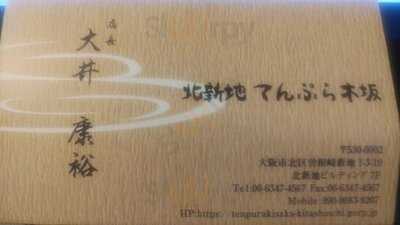 店長
大井 康裕
北新地 てんぷら木坂
〒530-0002
大阪市北区曽根崎新地 1-3-19
北新地ビルディング 7F
Tel:06-6347-4567 Fax:06-6347-4567
Mobile :090-9883-9207
HP:https: